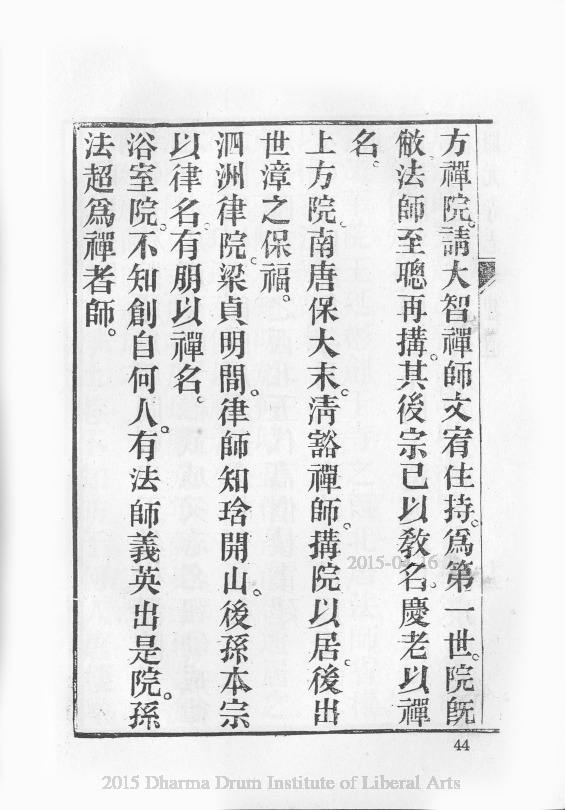 方禪院。請大智禪師文宥住持。爲第一世。院旣
敝。法師至聰再搆。其後宗已以敎名。慶老以禪
名。
上方院。南唐保大末。淸豁禪師。搆院以居。後出
世漳之保福。
泗洲律院。梁貞明間。律師知琀開山。後孫本宗
以律名。有朋以禪名。
浴室院。不知創自何人。有法師義英出是院。孫
法超爲禪者師。
44
2015-04-16
2015 Dharma Drum Institute of Liberal Arts